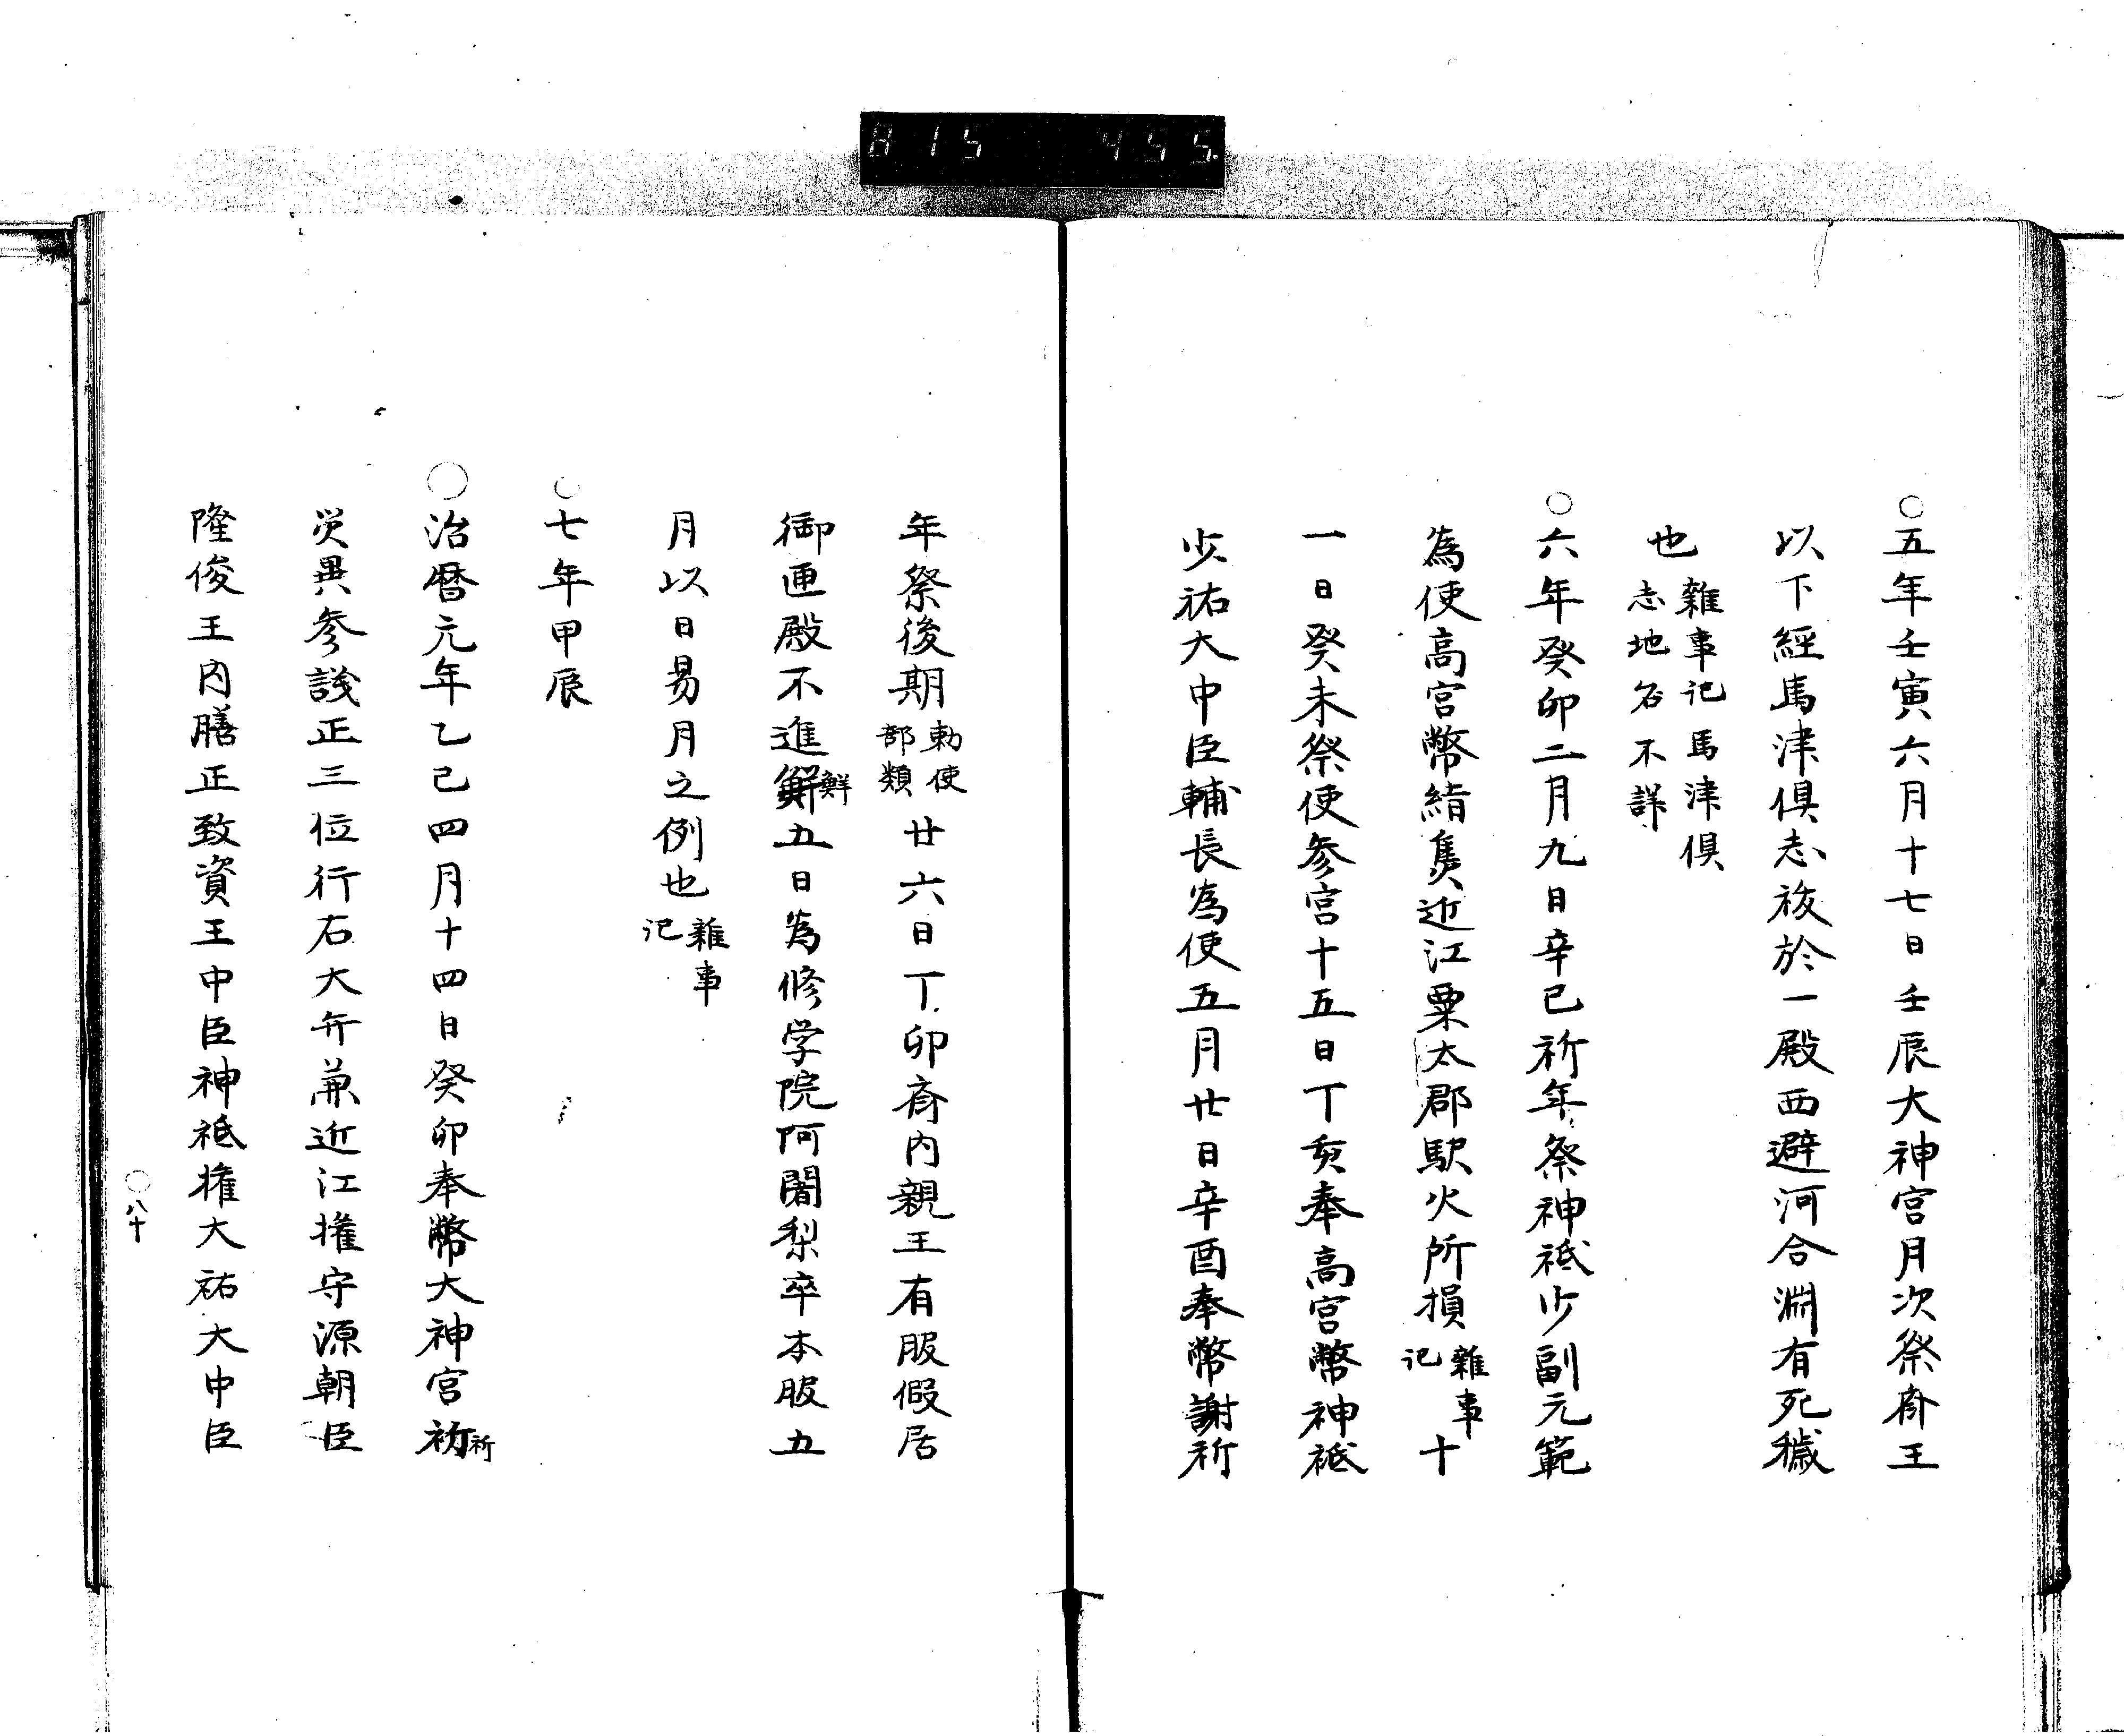 815 455.
○五年壬寅六月十七日壬辰大神宮月次祭斎王
以下經馬津俱志祓於一殿西避河合淵有死穢
也雜事記馬津俱
志地名不詳
○六年癸卯二月九日辛巳祈年祭神祇少副元範
為使高宮幣絹隻近江粟太郡駅火所損雜事記十
一日癸未祭使参宮十五日丁亥奉高宮幣神祇
少祐大中臣輔長為使五月廿日辛酉奉幣謝祈
年祭後期勅使
部類廿六日丁卯斎内親王有服假居
御匣殿不進鮮五日為修学院阿闍梨卒本服五
月以日易月之例也雜事
記
○七年甲辰
○治暦元年乙巳四月十四日癸卯奉幣大神宮祈
災異参議正三位行右大弁兼近江権守源朝臣
隆俊王内膳正致資王中臣神祇権大祐大中臣
○八十